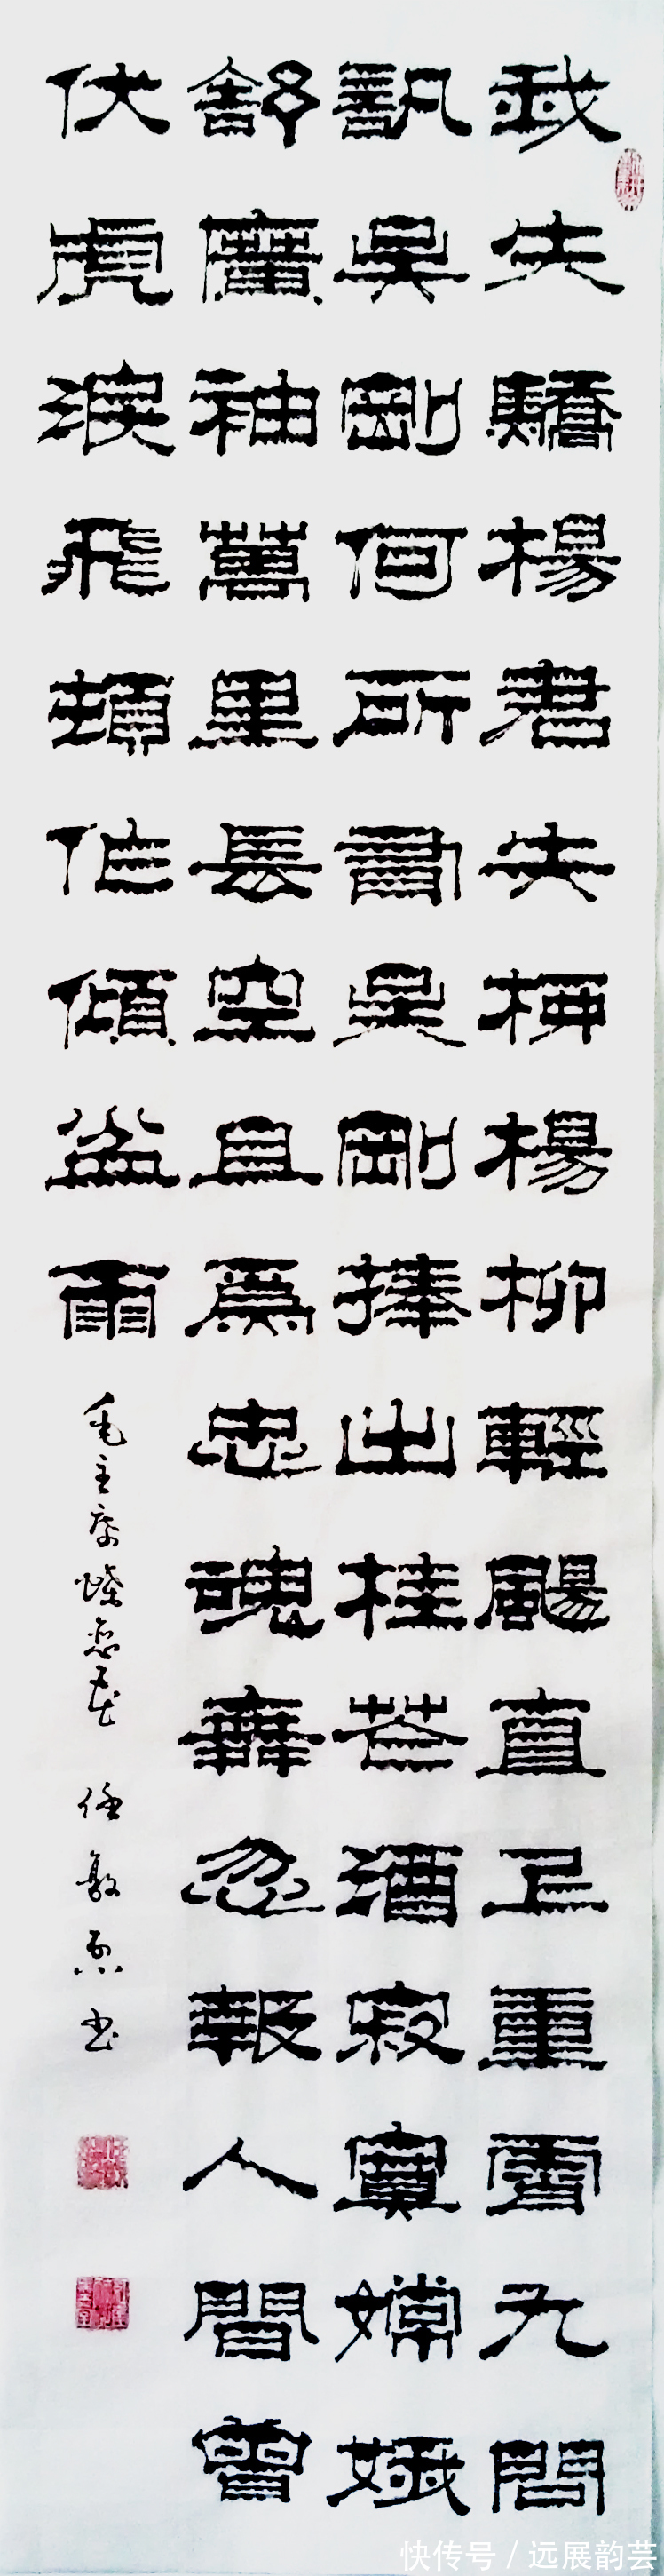 我失驕楊君失柳楊柳輕颺直上重霄九問
訊吳剛何所有吳剛捧出桂花酒寂寞嫦娥
舒廣袖萬里長空且爲忠魂舞忽報人間曾
伏虎淚飛頓作傾盆雨
毛主席蝶恋花 任 书
快传号 / 远展韵芸